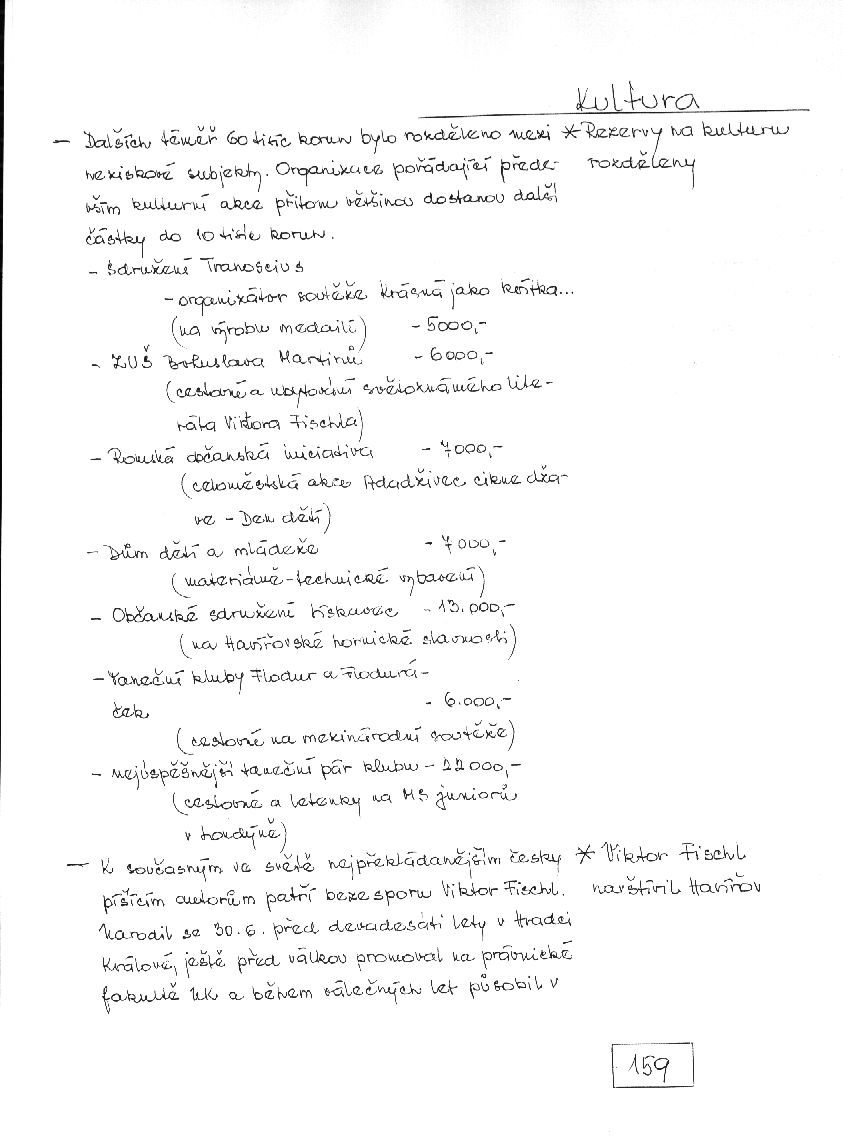 Kultura
– Dalších téměř 60 tisíc korun bylo rozděleno mezi * Rezervy na kulturu
neziskové subjekty. Organizace pořádající přede- rozděleny
vším kulturní akce přitom většinou dostanou další
částky do 10 tisíc korun.
- Sdružení Tranoscius
- organizátor soutěže Krásná jako kvítka...
(na výrobu medailí) - 5000,-
- ZUŠ Bohuslava Martinů - 6000,-
(cestovné a ubytování světoznámého lite-
ráta Viktora Fischla)
- Romská občanská iniciativa - 7000,-
(celoměstská akce Adadživec cikne dža-
ve - Den dětí)
- Dům dětí a mládeže - 7000,-
(materiálně-technické vybavení)
- Občanské sdružení Pískavec - 13.000,-
(na Havířovské hornické slavnosti)
- Taneční kluby Flodur a Flodurá-
ček - 6.000,-
(cestovné na mezinárodní soutěže)
- nejúspěšnější taneční pár klubu - 22 000,-
(cestovné a letenky na MS juniorů
v Londýně)
– K současným ve světě nejpřekládanějším česky * Viktor Fischl
píšícím autorům patří beze sporu Viktor Fischl. navštívil Havířov
Narodil se 30.6. před devadesáti lety v Hradci
Králové, ještě před válkou promoval na právnické
fakultě UK a během válečných let působil v
159